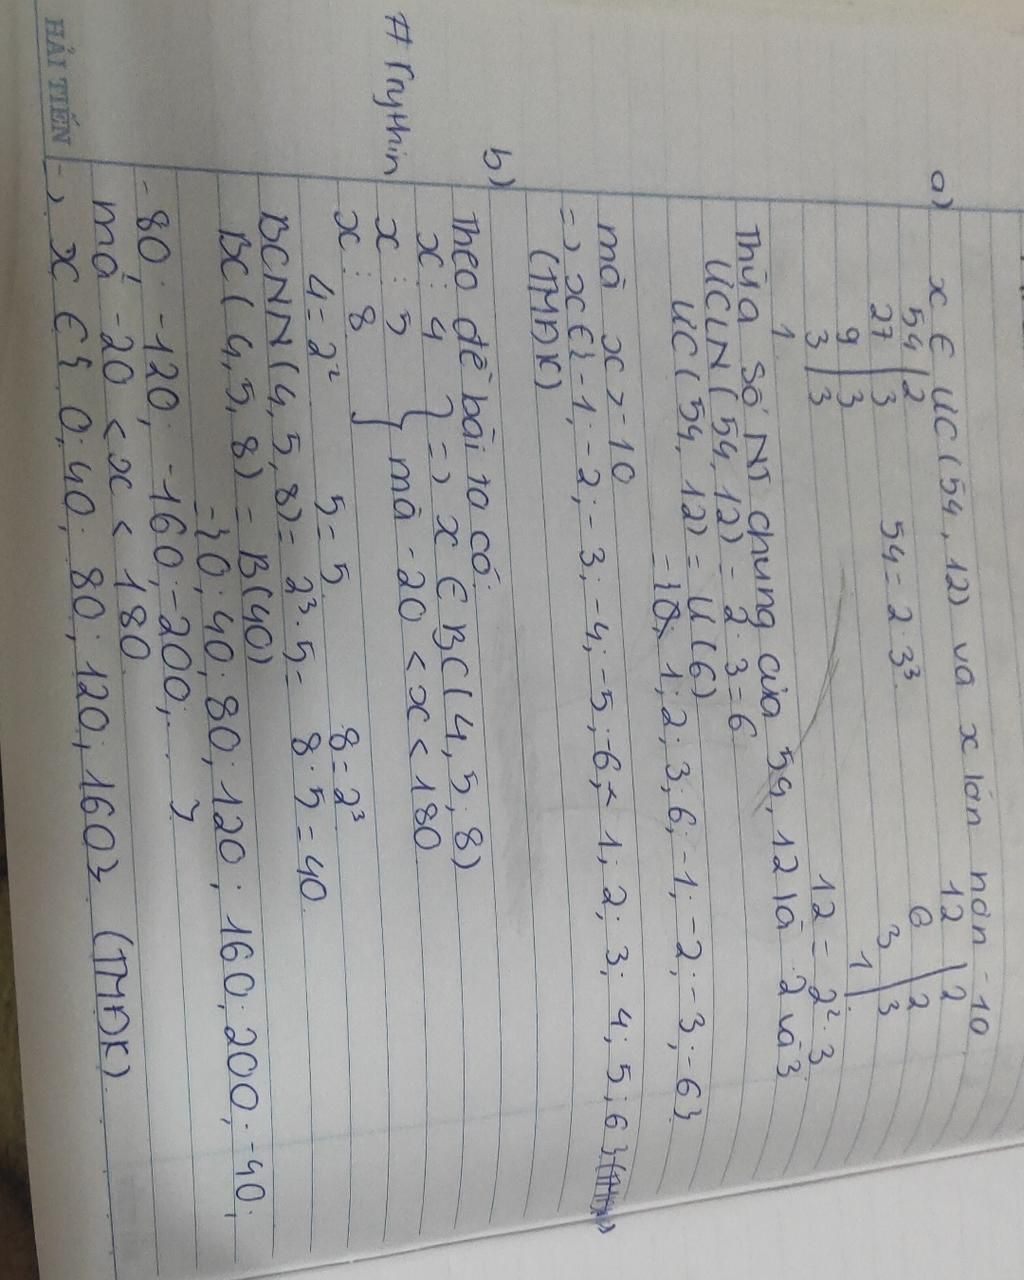 a) x ∈ ƯC(54, 12) và x lớn hơn -10
54 | 2 12 | 2
27 | 3 54 = 2 . 3³ 6 | 2
9 | 3 3 | 3
3 | 3 12 = 2² . 3 1
1
Thừa số NT chung của 54, 12 là 2 và 3
ƯCLN(54, 12) = 2 . 3 = 6
ƯC(54, 12) = Ư(6)
= {1; 2; 3; 6; -1; -2; -3; -6}
mà x > -10
=> x ∈ {-1; -2; -3; -4; -5; -6; 1; 2; 3; 4; 5; 6}
(TMĐK)
b) Theo đề bài ta có
x ⋮ 4 } => x ∈ BC(4, 5, 8)
x ⋮ 5 mà -20 < x < 180
x ⋮ 8
4 = 2² 5 = 5 8 = 2³
BCNN(4, 5, 8) = 2³ . 5 = 8 . 5 = 40
BC(4, 5, 8) = B(40)
= {0; 40; 80; 120; 160; 200; -40;
-80; -120; -160; -200; ... }
mà -20 < x < 180
=> x ∈ {0; 40; 80; 120; 160} (TMĐK)
HẢI TIẾN